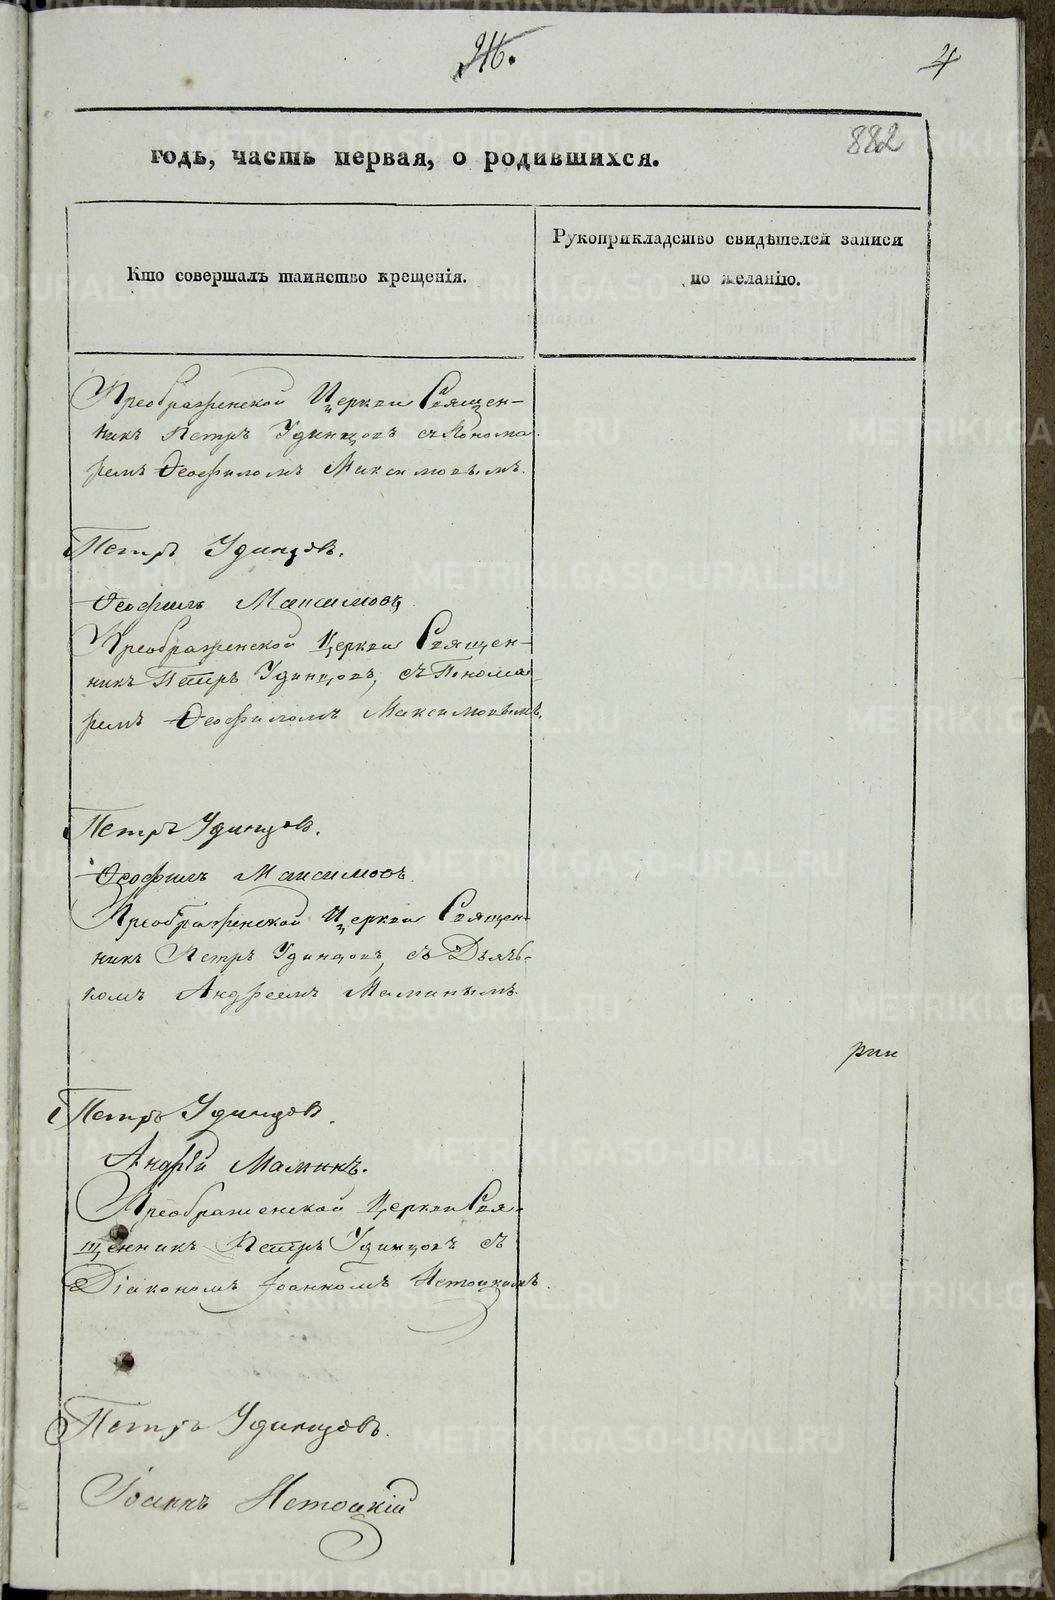 216.
4
882
годъ, часть первая, о родившихся.
Кто совершалъ таинство крещенія.
Рукоприкладство свидѣтелей записи
по желанію.
Преображенской Церкви Священ-
никъ Петръ Удинцовъ съ Понома
ремъ Ѳеофиломъ Максимовымъ.
Петръ Удинцовъ.
Ѳеофилъ Максимовъ
Преображенской Церкви Священ-
никъ Петръ Удинцовъ, съ Понома
ремъ Ѳеофиломъ Максимовымъ.
Петръ Удинцовъ.
Ѳеофилъ Максимовъ.
Преображенской Церкви Священ-
никъ Петръ Удинцовъ, съ Дьяч-
комъ Андреемъ Маминымъ.
Петръ Удинцовъ.
Андрей Маминъ.
Преображенской Церкви Свя-
щенникъ Петръ Удинцовъ съ
Діакономъ Іоанномъ
Петръ Удинцовъ.
Іоаннъ
METRIKI.GASO-URAL.RU